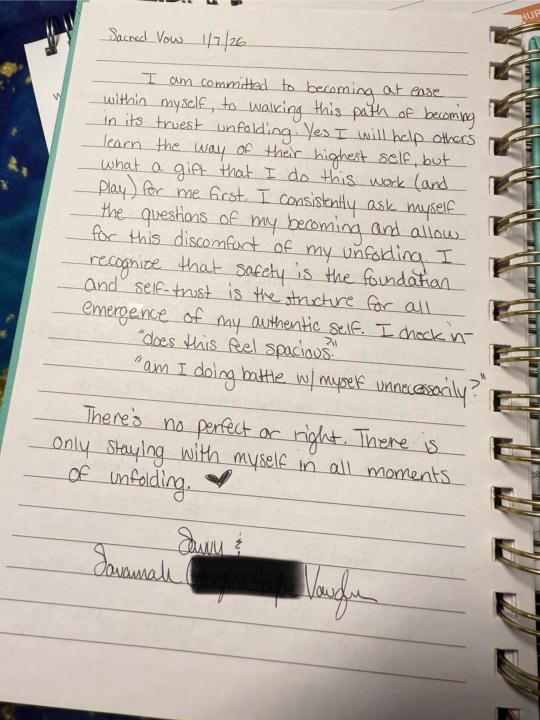 Sacred Vow 1/7/26
I am committed to becoming at ease
within myself, to walking this path of becoming
in its truest unfolding. Yes I will help others
learn the way of their highest self, but
what a gift that I do this work (and
play) for me first. I consistently ask myself
the questions of my becoming and allow
for this discomfort of my unfolding. I
recognize that safety is the foundation
and self-trust is the structure for all
emergence of my authentic self. I check in-
"does this feel spacious?"
"am I doing battle w/ myself unnecessarily?"
There's no perfect or right. There is
only staying with myself in all moments
of unfolding. ♥
Savvy &
Savannah Vaughn